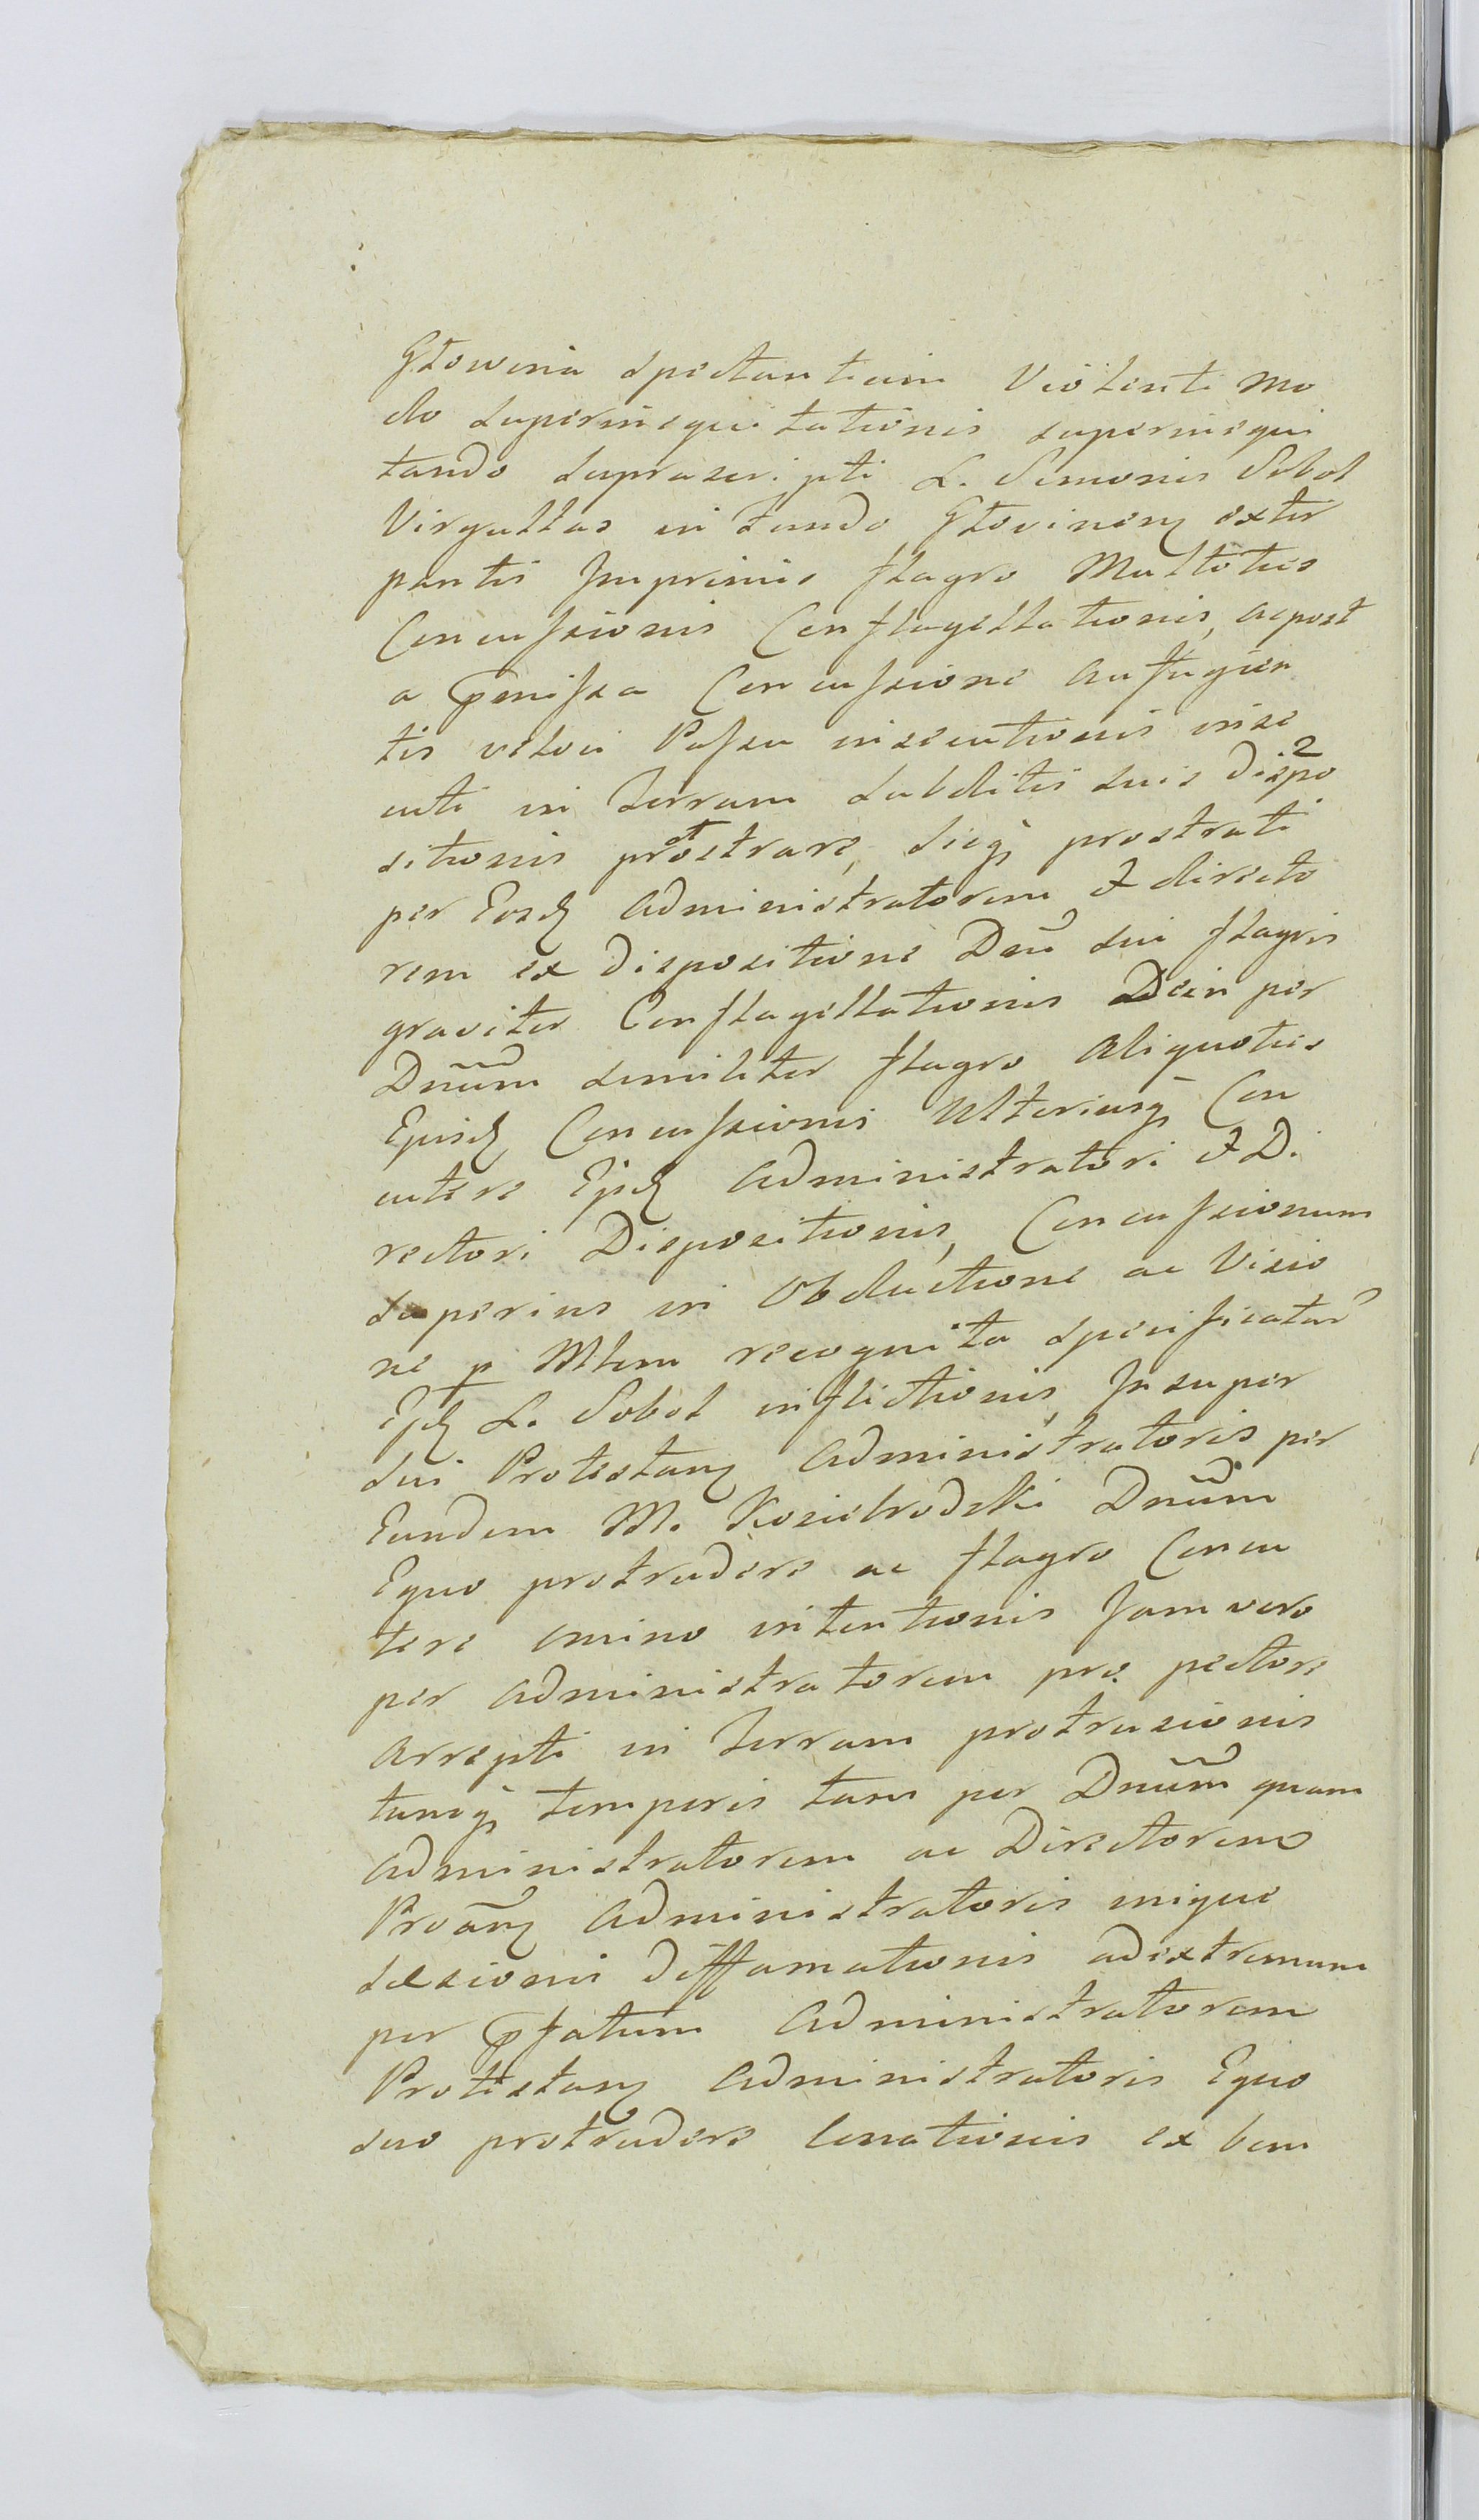 Głowina spectantium Violenti mo
do superinequitationis superinequi
tando suprascripti L. Simonis Sobol
Virgultas in fundo Głovinen extir
pantis Imprimis flagro Multoties
Concussionis Conflagellationis, acpost
a pmissa Concussione aufugien
tis veloci Passu insecutionis inse
cuti in Terram subditis suis Dispo
sitionis prostrare, sicq prostrati
per Eosd Administratorem & directo
rem ex Dispositione Dni sui flagris
graviter Conflagellationis Dein per
Dnum similiter flagro Aliquoties
Ejusd Concussionis Ulteriusq Con
cutere Ejsd Administratori & Di
rectori Dispositionis, Concussionum
superius in Obductione ac Visio
ne p Mlem recognita specificatar
Ejsd L. Sobol inflictionis, Insuper
sui Protestan Administratoris per
Eundem M. Koziebrodzki Dnum
Equo protrudere ac flagro Concu
tere omino intentionis Jam vero
per Administratorem pro pectore
Arrepti in Terram protrusionis
tuncq temporis tam per Dnum quam
Administratorem ac Directorem
Proan Administratoris inique
læsionis Diffamationis adextremum
per pfatum Administratorem
Protestan Administratoris Equo
suo protrudere Conationis ex bem